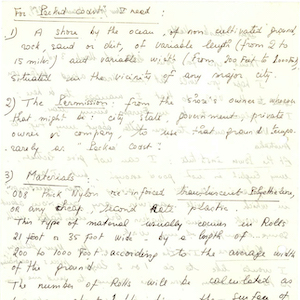 For "Packed coast" I need:
1) A shore by the ocean, of non cultivated ground,
rock, sand or dirt, of variable length (from 2 to
15 miles) and variable width (from 300 feet to
situated in the vicinity of any major city.
2) The Permission: from the shore's owner whoever
that might be: city, state, government, private
owner or company, to use that ground tempo-
rarely as "Packed Coast".
3) Materials:
008 thick Nylon re-inforced translucent Polyethelene,
or any cheap plastic.
This type of material usually comes in Rolls
21 foot or 35 foot wide by a length of
200 to 1000 feet according to the average width
of the ground.
The number of Rolls will be calculated as